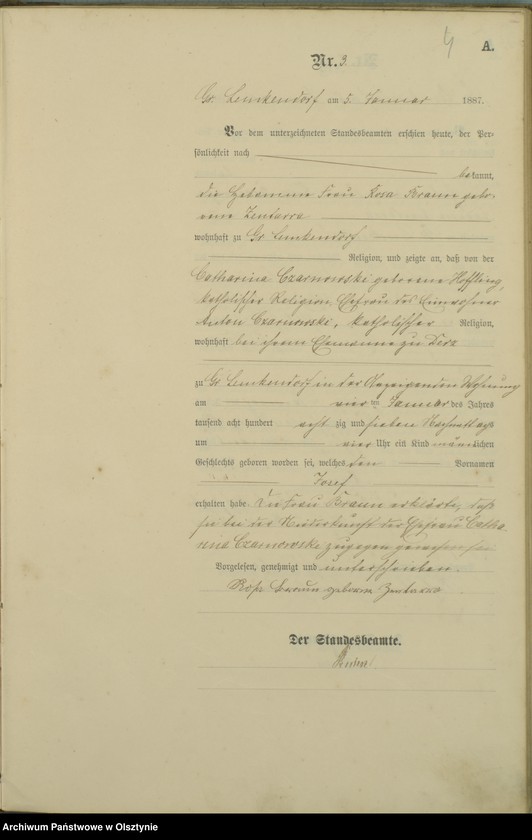 4
A.
Nr. 3.
Gr. Lemkendorf am 5. Januar 1887.
Vor dem unterzeichneten Standesbeamten erschien heute, der Per-
sönlichkeit nach
bekannt,
die Hebamme Frau Rosa Braun gebo-
rene Zentarra
wohnhaft zu Gr. Lemkendorf
Religion, und zeigte an, daß von der
Catharina Czarnowski geborene Höffling,
katholischer Religion, Ehefrau des Einwohners
Anton Czarnowski, katholischer Religion,
wohnhaft bei ihrem Ehemanne zu Derz
zu Gr. Lemkendorf in der Anzeigenden Wohnung
am vier ten Januar des Jahres
tausend acht hundert acht zig und sieben Nachmittags
um vier Uhr ein Kind männlichen
Geschlechts geboren worden sei, welches den Vornamen
Josef
erhalten habe. Die Frau Braun erklärte, daß
sie bei der Niederkunft der Ehefrau Catha-
rina Czarnowski zugegen gewesen sei.
Vorgelesen, genehmigt und unterschrieben.
Rosa Braun geborene Zentarra
Der Standesbeamte.
Archiwum Państwowe w Olsztynie